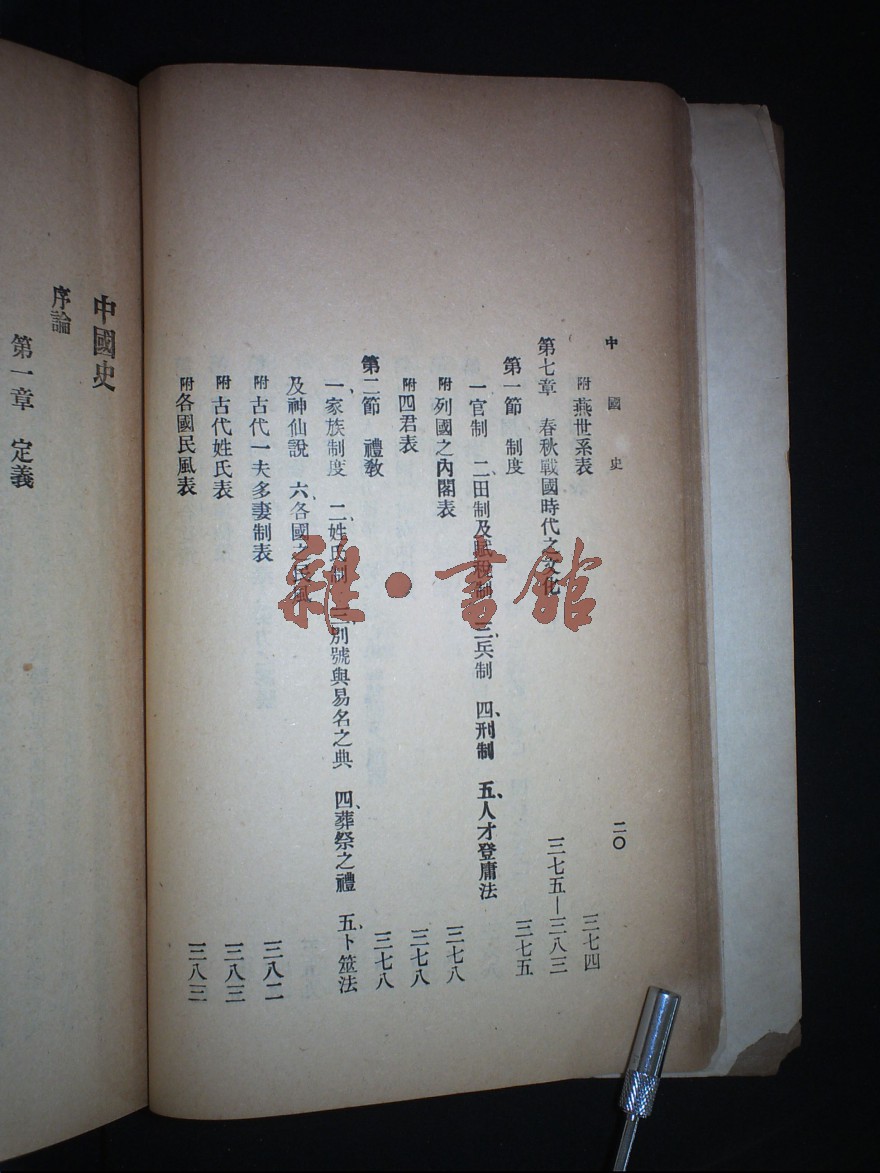 中國史
二〇
附 燕世系表 三七四
第七章 春秋戰國時代之文化 三七五—三八三
第一節 制度 三七五
一、官制 二、田制及賦稅制 三、兵制 四、刑制 五、人才登庸法
附 列國之內閣表 三七八
附 四君表 三七八
第二節 禮教 三七八
一、家族制度 二、姓氏制 三、別號與易名之典 四、葬祭之禮 五、卜筮法
及神仙說 六、各國之民風
附 古代一夫多妻制表 三八二
附 古代姓氏表 三八三
附 各國民風表 三八三
中國史
序論
第一章 定義
雜·書館